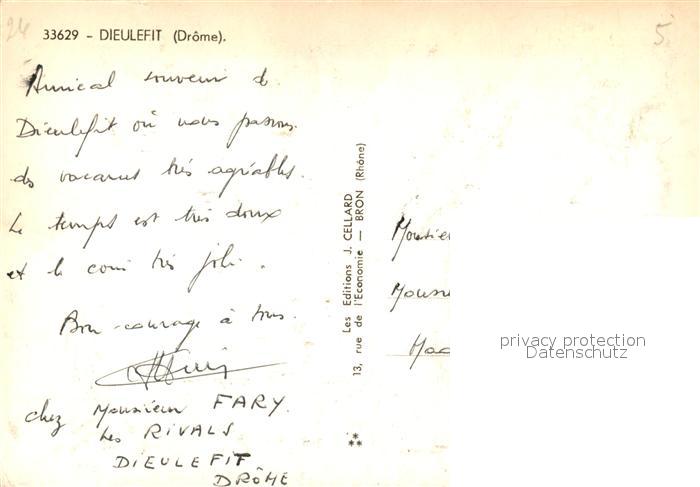 24
33629 - DIEULEFIT (Drôme).
5
Amical souvenir de
Dieulefit où nous passons
des vacances très agréables.
Le temps est très doux
et le coin très joli.
Bon courage à tous.
chez Monsieur FARY.
Les RIVALS
DIEULEFIT
DRÔME
Les Editions J. CELLARD
13, rue de l'Economie — BRON (Rhône)
Monsieu
privacy protection
Datenschutz